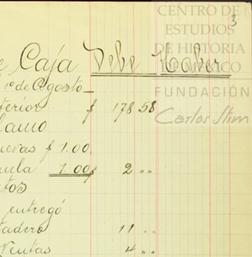 CENTRO DE
ESTUDIOS
DE HISTORIA
DE MÉXICO
FUNDACIÓN
Carlos Slim
3
e Caja Debe Haber
1º de Agosto
terior $ 178.58
lamo
uevas $ 1.00
uila 1.00 $ 2 ..
tos
entregó
tadero 11 ..
Ventas 4 ..